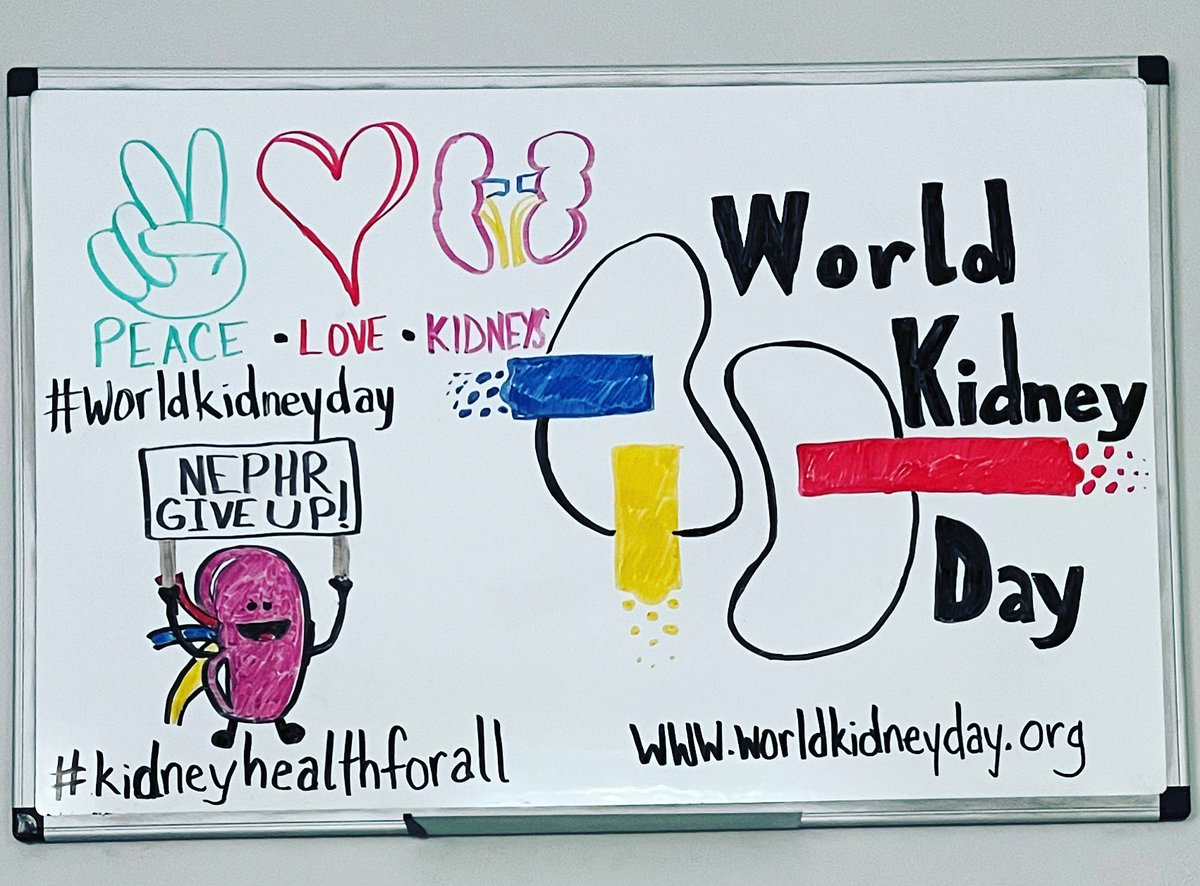 PEACE • LOVE • KIDNEYS
#worldkidneyday
NEPHR
GIVE UP!
#kidneyhealthforall
World
Kidney
Day
www.worldkidneyday.org